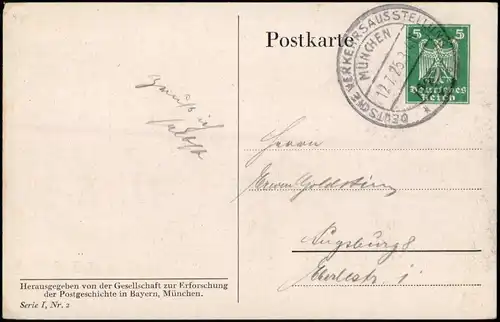 Postkarte
DEUTSCHE VERKEHRSAUSSTELLUNG
MÜNCHEN
12.7.25.
5 5
Deutsches
Reich
Herrn
Erwin Goldstein
Augsburg 8
Herausgegeben von der Gesellschaft zur Erforschung
der Postgeschichte in Bayern, München.
Serie I, Nr. 2